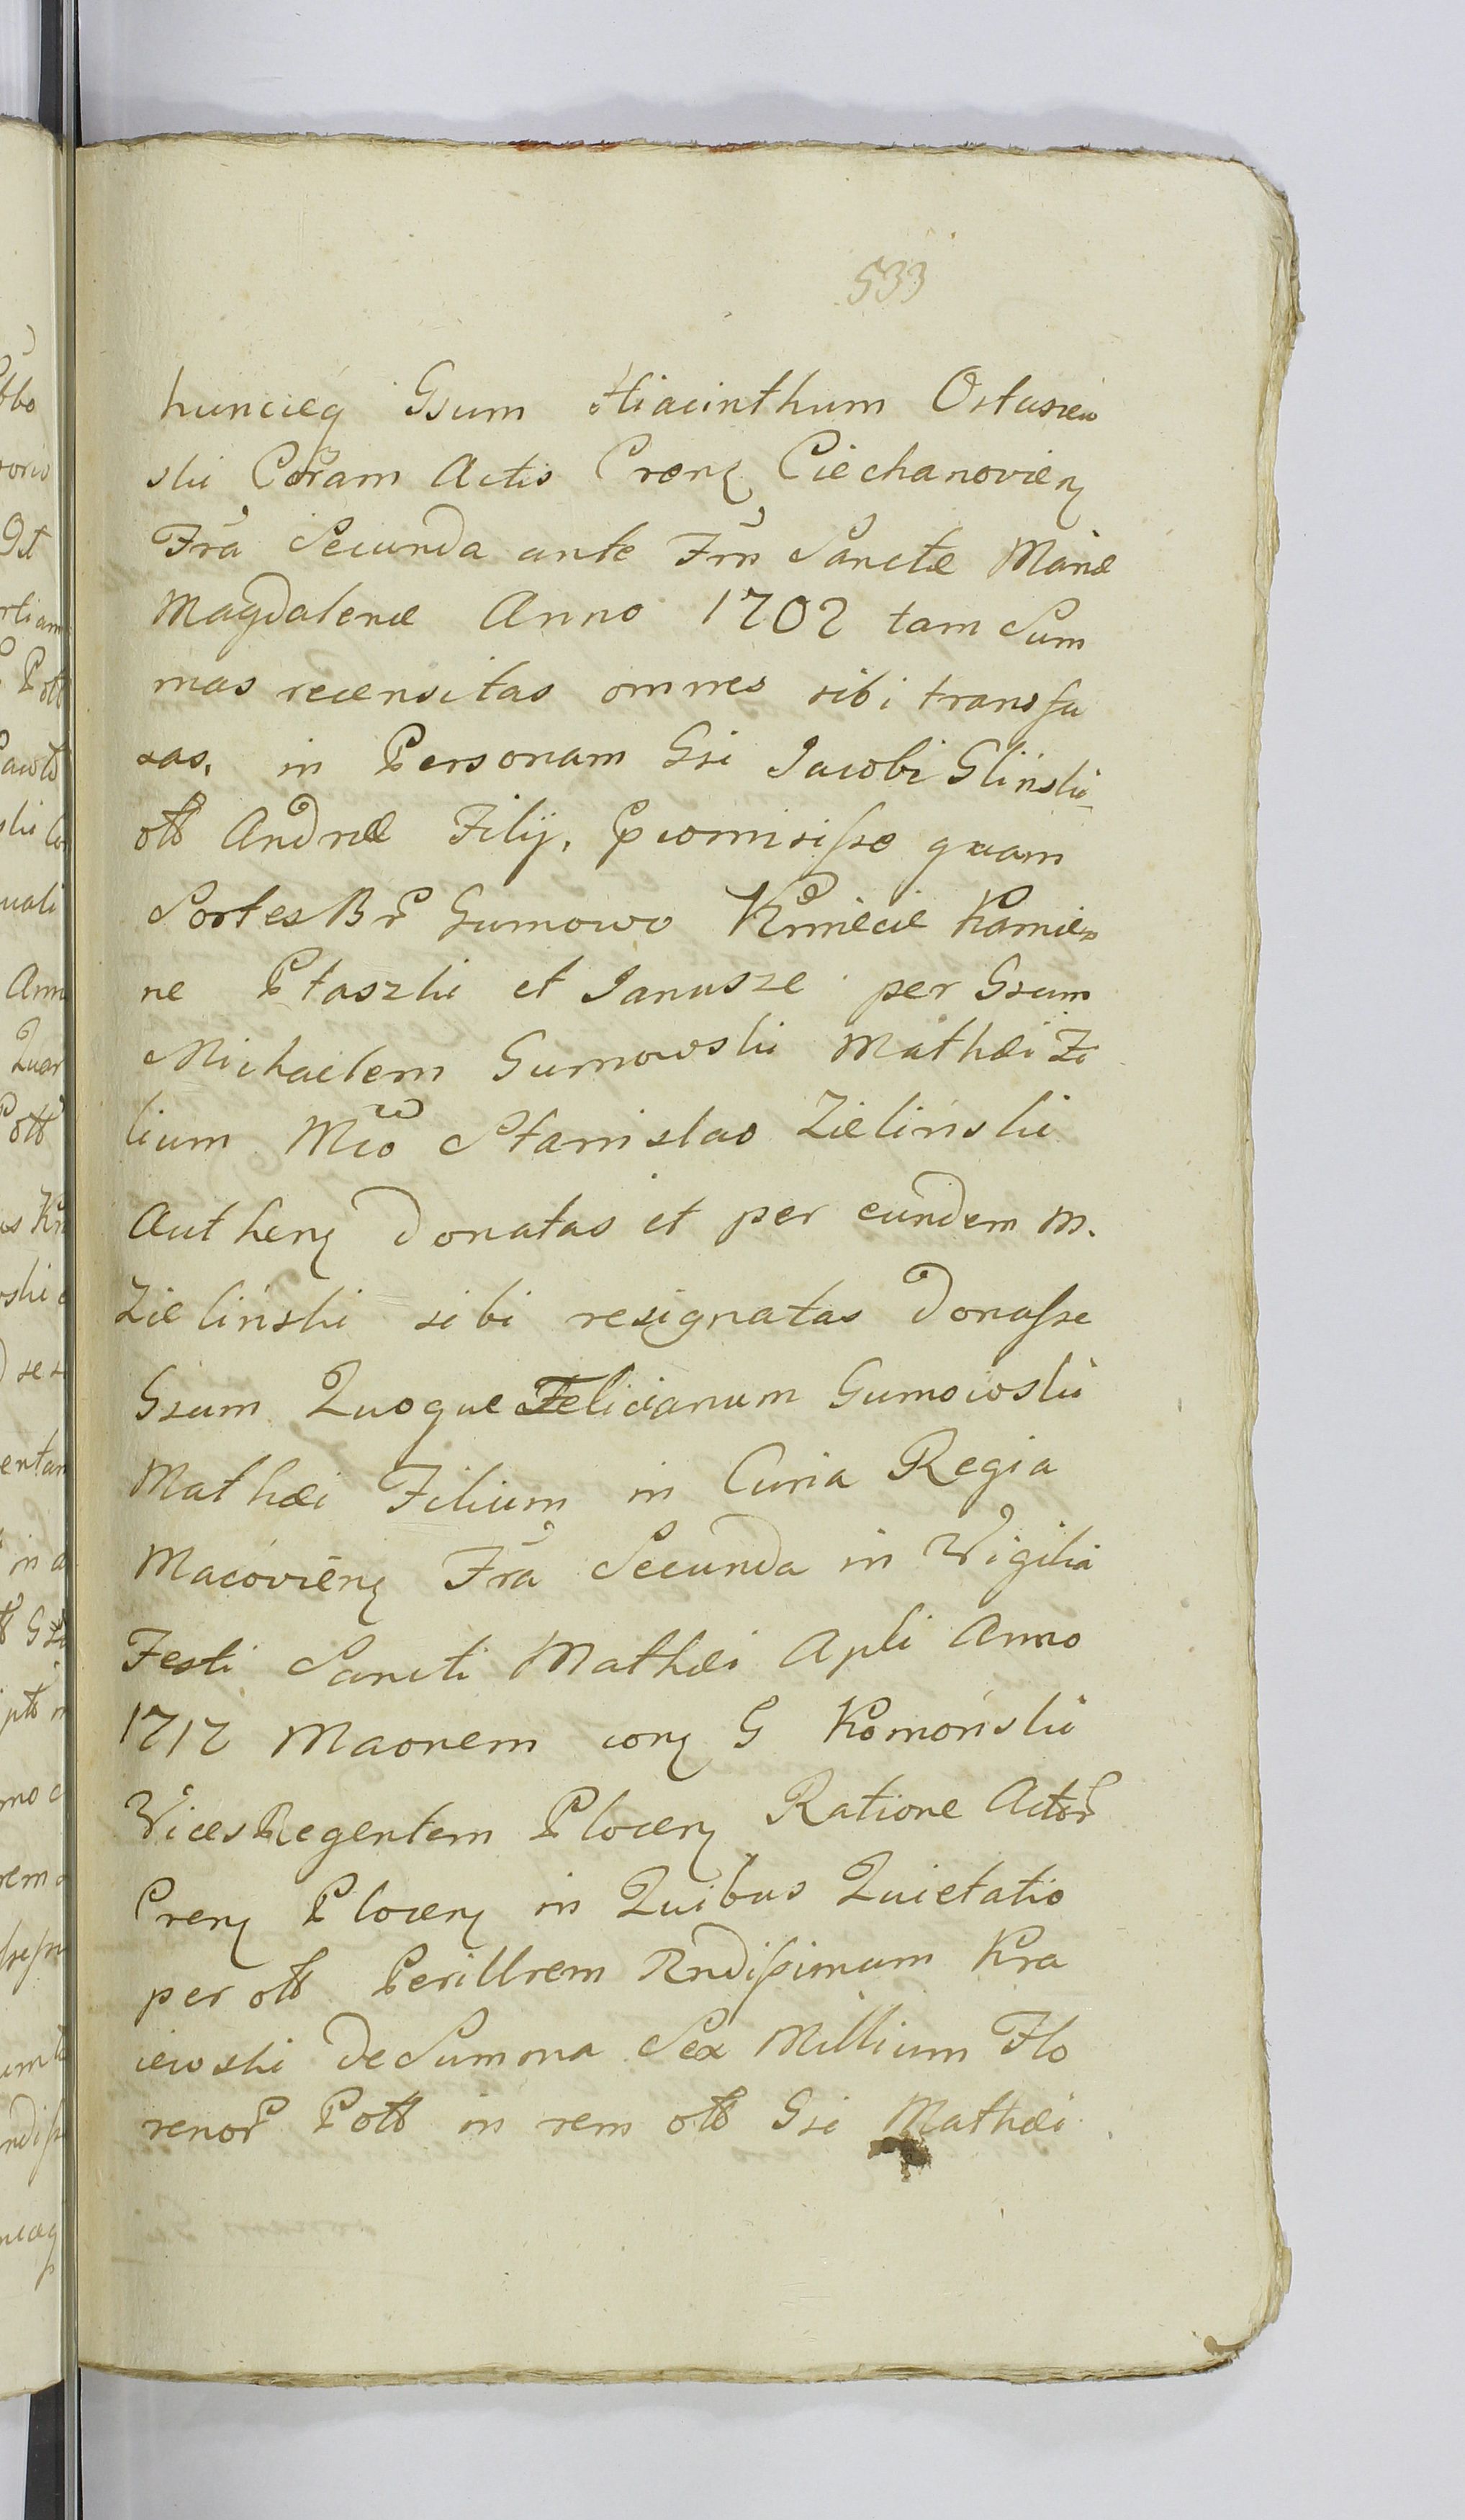 533
huncieq Gsum Hiacinthum Ostaszew
ski Coram Actis Cren Ciechanovien
Fra Secunda ante Fm Sanctæ Mariæ
Magdalenæ Anno 1702 tam Sum
mas recensitas omnes sibi transfu
sas, in Personam Gsi Jacobi Glinski
otb Andreæ Filij, comisisse quam
Sortes Br Gumowo Kmiecie Kamien
ne Ptaszki et Janusze per Gsum
Michaelem Gumowski Mathæi Fi
lium Mco Stanislao Zielinski
Authen donatas et per eundem M.
Zielinski sibi resignatas donasse
Gsum Quoque Felicianum Gumowski
Mathæi Filium in Curia Regia
Macovien Fra Secunda in Vigilia
Festi Sancti Mathæi Apli Anno
1717 Maonem con G Komonski
Vices Regentem Plocen Ratione Actor
Cren Plocen in Quibus Quietatio
per otb Perillrem Rndissimum Kra
iewski de Summa Sex Millium Flo
renor Pott in rem otb Gsi Mathæi